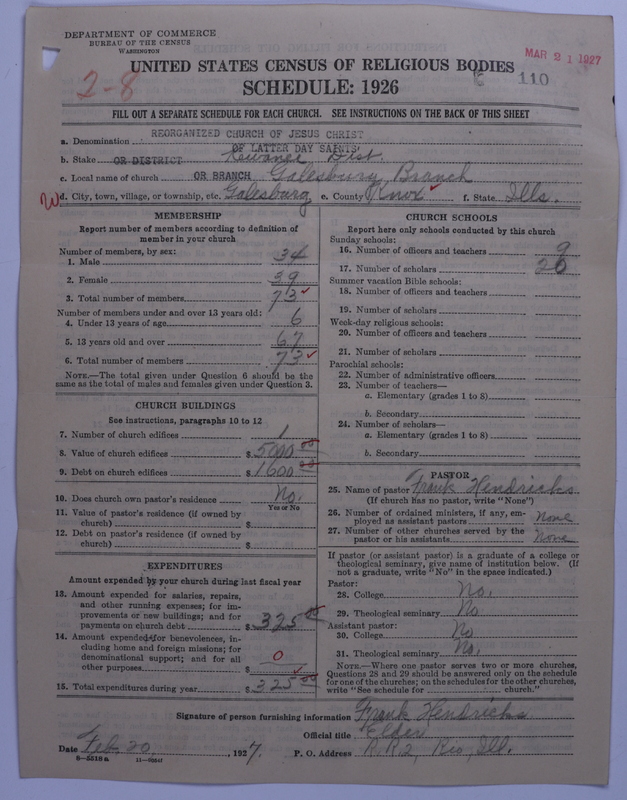 DEPARTMENT OF COMMERCE
BUREAU OF THE CENSUS
WASHINGTON
MAR 21 1927
UNITED STATES CENSUS OF RELIGIOUS BODIES
2-8
110
SCHEDULE: 1926
FILL OUT A SEPARATE SCHEDULE FOR EACH CHURCH. SEE INSTRUCTIONS ON THE BACK OF THIS SHEET
a. Denomination REORGANIZED CHURCH OF JESUS CHRIST
OF LATTER DAY SAINTS
b. Stake OR DISTRICT Kewanee Dist.
c. Local name of church OR BRANCH Galesburg Branch
d. City, town, village, or township, etc. Galesburg e. County Knox f. State Ills.
MEMBERSHIP
Report number of members according to definition of
member in your church
Number of members, by sex:
1. Male 34
2. Female 39
3. Total number of members 73
Number of members under and over 13 years old:
4. Under 13 years of age 6
5. 13 years old and over 67
6. Total number of members 73
NOTE.—The total given under Question 6 should be the
same as the total of males and females given under Question 3.
CHURCH BUILDINGS
See instructions, paragraphs 10 to 12
7. Number of church edifices 1
8. Value of church edifices $ 5000 00
9. Debt on church edifices $ 1600 00
10. Does church own pastor's residence No.
Yes or No
11. Value of pastor's residence (if owned by
church) $
12. Debt on pastor's residence (if owned by
church) $
EXPENDITURES
Amount expended by your church during last fiscal year
13. Amount expended for salaries, repairs,
and other running expenses; for im-
provements or new buildings; and for
payments on church debt $ 325 00
14. Amount expended for benevolences, in-
cluding home and foreign missions; for
denominational support; and for all
other purposes $ 0
15. Total expenditures during year $ 325 00
CHURCH SCHOOLS
Report here only schools conducted by this church
Sunday schools:
16. Number of officers and teachers 9
17. Number of scholars 20
Summer vacation Bible schools:
18. Number of officers and teachers
19. Number of scholars
Week-day religious schools:
20. Number of officers and teachers
21. Number of scholars
Parochial schools:
22. Number of administrative officers
23. Number of teachers—
a. Elementary (grades 1 to 8)
b. Secondary
24. Number of scholars—
a. Elementary (grades 1 to 8)
b. Secondary
PASTOR
25. Name of pastor Frank Hendricks
(If church has no pastor, write "None")
26. Number of ordained ministers, if any, em-
ployed as assistant pastors None
27. Number of other churches served by the
pastor or his assistants None
If pastor (or assistant pastor) is a graduate of a college or
theological seminary, give name of institution below. (If
not a graduate, write "No" in the space indicated.)
Pastor:
28. College No.
29. Theological seminary No
Assistant pastor:
30. College No
31. Theological seminary No.
NOTE.—Where one pastor serves two or more churches,
Questions 28 and 29 should be answered only on the schedule
for one of the churches; on the schedules for the other churches,
write "See schedule for church."
Signature of person furnishing information Frank Hendricks
Official title Elder
Date Feb. 20, 1927. P. O. Address R.R.2, Rio, Ill.
8-5518a